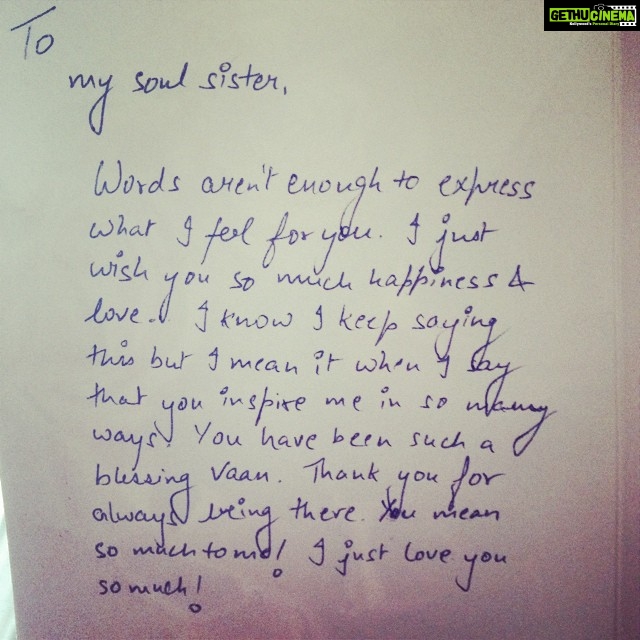 GETHUCINEMA
Kollywood's Personal Diary
To
my soul sister,
Words aren't enough to express
what I feel for you. I just
wish you so much happiness &
love. I know I keep saying
this but I mean it when I say
that you inspire me in so many
ways. You have been such a
blessing Vaan. Thank you for
always being there. You mean
so much to me! I just love you
so much!